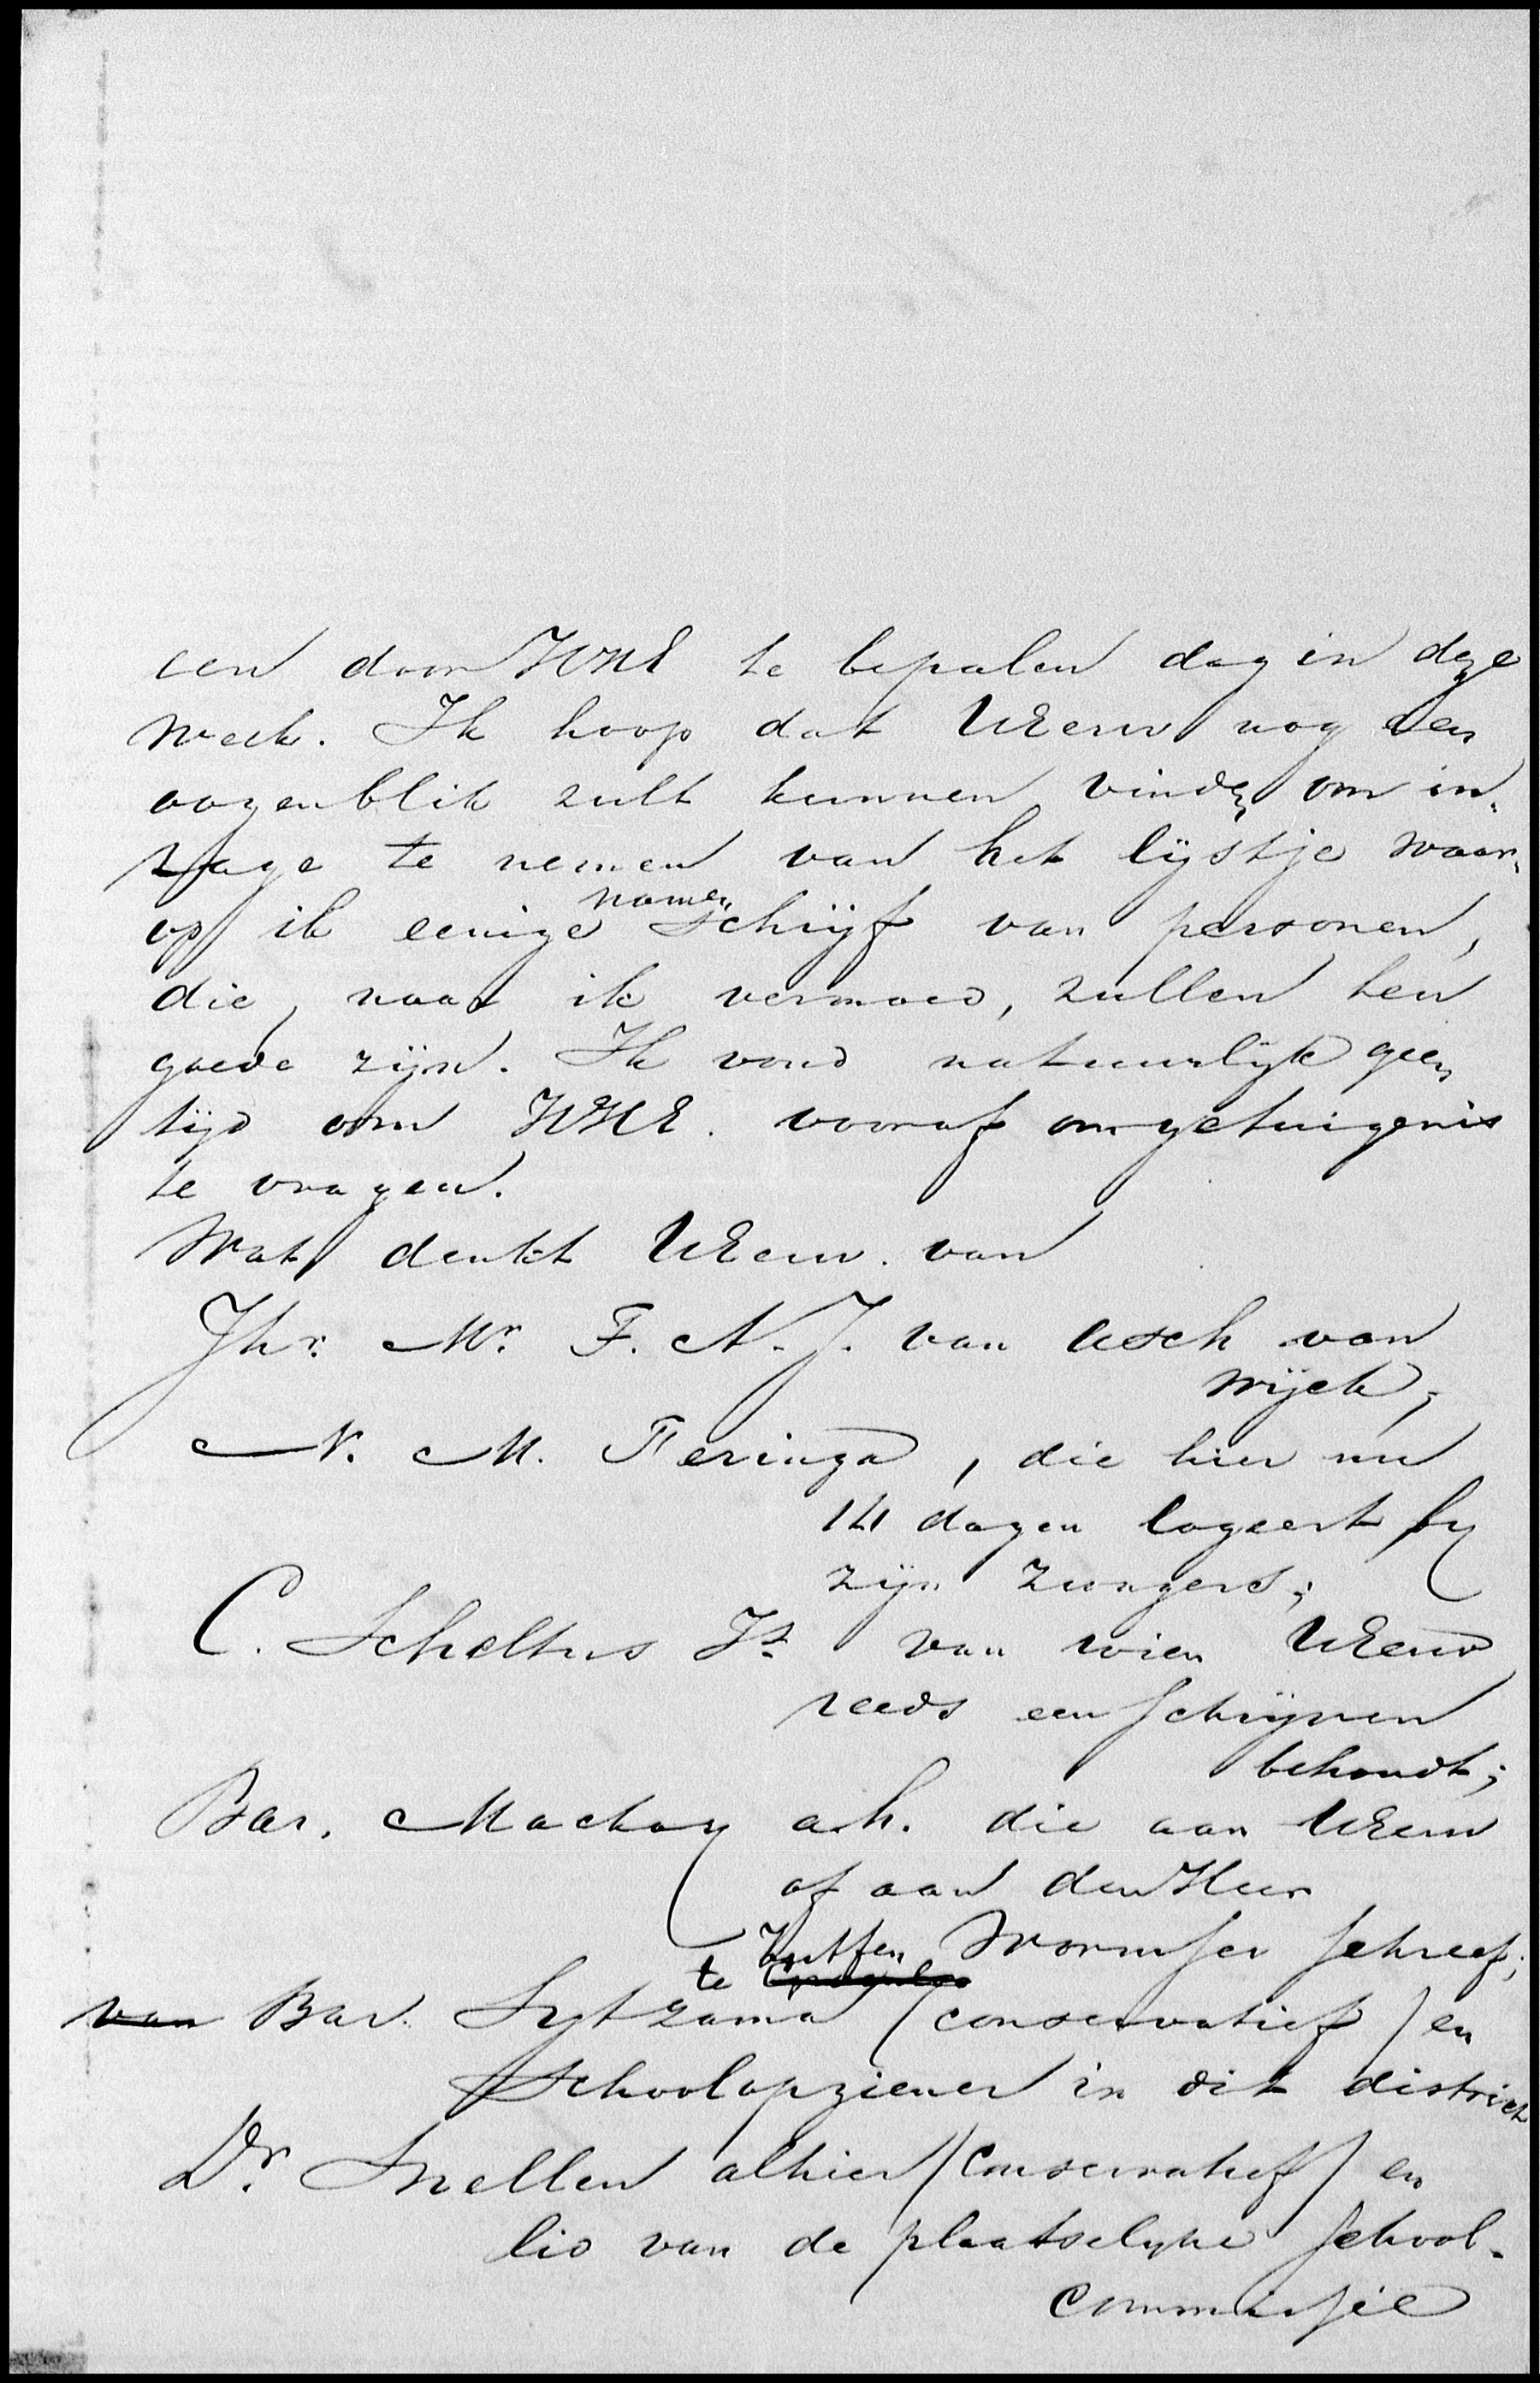 een door HWE te bepalen dag in deze
week. Ik hoop dat UEerw nog een
oogenblik zult kunnen vinden om in-
zage te nemen van het lijstje waar-
op ik eenige namen schrijf van personen,
die, naar ik vermoed, zullen ten
goede zijn. Ik vond natuurlijk geen
tijd om vooraf om getuigenis
te vragen.
Wat denkt UEerw. van
Jhr. Mr. F. A. J. van Asch van
Wijck;
N. M. Feringa, die hier nu
14 dagen logeert by
zijn zwagers;
C. Scheltus Jz. van wien UEerw
reeds een schrijven
behoudt;
Bar. Mackay alh. die aan UEerw
of aan den Heer
Wormser schreef;
van Bar. Sytzama te Zutfen (conservatief) en
Schoolopziener in dit district
Dr. Snellen alhier (conservatief) en
lid van de plaatselyke school-
commissie